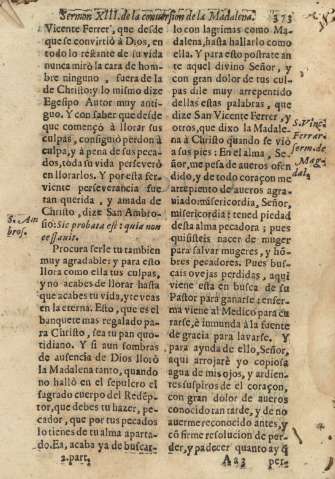 Sermon XIII. de la conversion de la Madalena. 373
Vicente Ferrer, que desde
que se convirtió a Dios, en
todo lo restante de su vida
nunca miró la cara de hom-
bre ninguno, fuera de la
de Christo: y lo mismo dize
Egesipo Autor muy anti-
guo. Y con saber que desde
que començò à llorar sus
culpas, consiguiò perdon à
culpa, y à pena de sus peca-
dos, toda su vida perseverò
en llorarlos. Y por esta ser-
viente perseverancia fue
tan querida, y amada de
Christo, dize San Ambro-
sio: Sic probata est: quia non
cessauit.
S. Am
bros.
Procura serle tu tambien
muy agradable: y para esto
llora como ella tus culpas,
y no acabes de llorar hasta
que acabes tu vida, y te veas
en la eterna. Esto, que es el
banquete mas regalado pa-
ra Christo, sea tu pan quo-
tidiano. Y si aun sombras
de ausencia de Dios llorò
la Madalena tanto, quando
no hallò en el sepulcro el
sagrado cuerpo del Redẽp-
tor, que debes tu hazer, pe-
cador, que por tus pecados
lo tienes de tu alma aparta-
do. Ea, acaba ya de buscar-
2. part.
lo con lagrimas como Ma-
dalena, hasta hallarlo como
ella. Y para esto postrate an
te aquel divino Señor, y
con gran dolor de tus cul-
pas dile muy arrepentido
dellas estas palabras, que
dize San Vicente Ferrer, y
otros, que dixo la Madale-
na à Christo quando se viò
a sus pies: En el alma, Se-
ñor, me pesa de aueros ofen
dido, y de todo coraçon me
arrepiento de aueros agra-
uiado: misericordia, Señor,
misericordia: tened piedad
desta alma pecadora; pues
quisisteis nacer de muger
para salvar mugeres, y hõ-
bres pecadores. Pues bus-
cais ovejas perdidas, aqui
viene esta en busca de su
Pastor para ganarse: enfer-
ma viene al Medico para cu
rarse, è inmunda à la fuente
de gracia para lavarse. Y
para ayuda de ello, Señor,
aqui arrojarè yo copiosa
agua de mis ojos, y ardien-
tes suspiros de el coraçon,
con gran dolor de averos
conocido tan tarde, y de no
auerme reconocido antes, y
cõ firme resolucion de per-
der, y padecer quanto ay q̃
S. Vinc.
Ferrar.
serm. de
Mag-
dal.
Aa3 per-